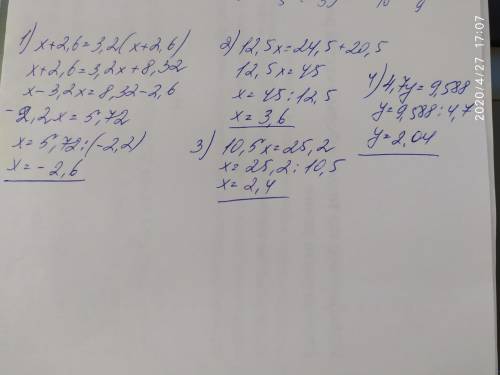 1) x+2,6=3,2(x+2,6)
x+2,6=3,2x+8,32
x-3,2x=8,32-2,6
-2,2x=5,72
x=5,72:(-2,2)
x=-2,6
2) 12,5x=24,5+20,5
12,5x=45
x=45:12,5
x=3,6
3) 10,5x=25,2
x=25,2:10,5
x=2,4
4) 4,7y=9,588
y=9,588:4,7
y=2,04
2020/4/27 17:07